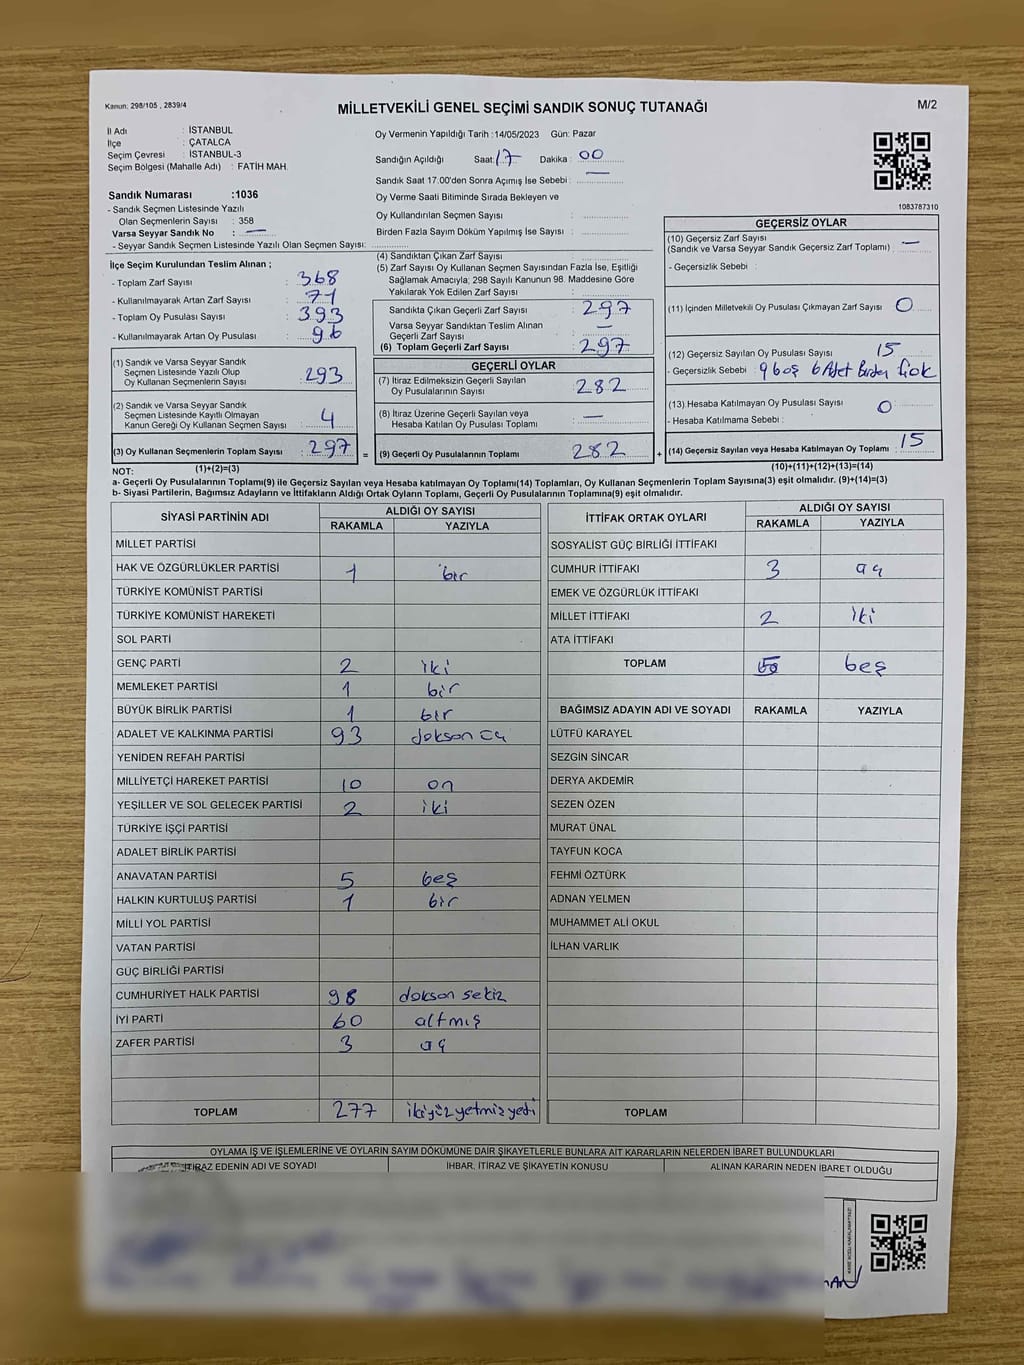 Kanun: 298/105 , 2839/4
MİLLETVEKİLİ GENEL SEÇİMİ SANDIK SONUÇ TUTANAĞI
M/2
İl Adı : İSTANBUL
İlçe : ÇATALCA
Seçim Çevresi : İSTANBUL-3
Seçim Bölgesi (Mahalle Adı) : FATİH MAH.
Sandık Numarası :1036
- Sandık Seçmen Listesinde Yazılı
Olan Seçmenlerin Sayısı : 358
Varsa Seyyar Sandık No : —
- Seyyar Sandık Seçmen Listesinde Yazılı Olan Seçmen Sayısı:
Oy Vermenin Yapıldığı Tarih :14/05/2023 Gün: Pazar
Sandığın Açıldığı Saat: 17 Dakika : 00
Sandık Saat 17.00'den Sonra Açımış İse Sebebi : —
Oy Verme Saati Bitiminde Sırada Bekleyen ve
Oy Kullandırılan Seçmen Sayısı :
Birden Fazla Sayım Döküm Yapılmış İse Sayısı :
1083787310
İlçe Seçim Kurulundan Teslim Alınan ;
- Toplam Zarf Sayısı : 368
- Kullanılmayarak Artan Zarf Sayısı : 71
- Toplam Oy Pusulası Sayısı : 393
- Kullanılmayarak Artan Oy Pusulası : 96
(1) Sandık ve Varsa Seyyar Sandık
Seçmen Listesinde Yazılı Olup
Oy Kullanan Seçmenlerin Sayısı : 293
(2) Sandık ve Varsa Seyyar Sandık
Seçmen Listesinde Kayıtlı Olmayan
Kanun Gereği Oy Kullanan Seçmen Sayısı : 4
(3) Oy Kullanan Seçmenlerin Toplam Sayısı : 297 =
(4) Sandıktan Çıkan Zarf Sayısı :
(5) Zarf Sayısı Oy Kullanan Seçmen Sayısından Fazla İse, Eşitliği
Sağlamak Amacıyla; 298 Sayılı Kanunun 98. Maddesine Göre
Yakılarak Yok Edilen Zarf Sayısı :
Sandıkta Çıkan Geçerli Zarf Sayısı : 297
Varsa Seyyar Sandıktan Teslim Alınan
Geçerli Zarf Sayısı : —
(6) Toplam Geçerli Zarf Sayısı : 297
GEÇERLİ OYLAR
(7) İtiraz Edilmeksizin Geçerli Sayılan
Oy Pusulalarının Sayısı : 282
(8) İtiraz Üzerine Geçerli Sayılan veya
Hesaba Katılan Oy Pusulası Toplamı : —
(9) Geçerli Oy Pusulalarının Toplamı : 282 +
GEÇERSİZ OYLAR
(10) Geçersiz Zarf Sayısı : —
(Sandık ve Varsa Seyyar Sandık Geçersiz Zarf Toplamı)
- Geçersizlik Sebebi :
(11) İçinden Milletvekili Oy Pusulası Çıkmayan Zarf Sayısı : 0
(12) Geçersiz Sayılan Oy Pusulası Sayısı : 15
- Geçersizlik Sebebi : 9 boş 6 Adet Birden
(13) Hesaba Katılmayan Oy Pusulası Sayısı : 0
- Hesaba Katılmama Sebebi :
(14) Geçersiz Sayılan veya Hesaba Katılmayan Oy Toplamı : 15
NOT: (1)+(2)=(3) (10)+(11)+(12)+(13)=(14)
a- Geçerli Oy Pusulalarının Toplamı(9) ile Geçersiz Sayılan veya Hesaba katılmayan Oy Toplamı(14) Toplamları, Oy Kullanan Seçmenlerin Toplam Sayısına(3) eşit olmalıdır. (9)+(14)=(3)
b- Siyasi Partilerin, Bağımsız Adayların ve İttifakların Aldığı Ortak Oyların Toplamı, Geçerli Oy Pusulalarının Toplamına(9) eşit olmalıdır.
SİYASİ PARTİNİN ADI ALDIĞI OY SAYISI
RAKAMLA YAZIYLA
MİLLET PARTİSİ
HAK VE ÖZGÜRLÜKLER PARTİSİ 1 bir
TÜRKİYE KOMÜNİST PARTİSİ
TÜRKİYE KOMÜNİST HAREKETİ
SOL PARTİ
GENÇ PARTİ 2 iki
MEMLEKET PARTİSİ 1 bir
BÜYÜK BİRLİK PARTİSİ 1 bir
ADALET VE KALKINMA PARTİSİ 93 doksan üç
YENİDEN REFAH PARTİSİ
MİLLİYETÇİ HAREKET PARTİSİ 10 on
YEŞİLLER VE SOL GELECEK PARTİSİ 2 iki
TÜRKİYE İŞÇİ PARTİSİ
ADALET BİRLİK PARTİSİ
ANAVATAN PARTİSİ 5 beş
HALKIN KURTULUŞ PARTİSİ 1 bir
MİLLİ YOL PARTİSİ
VATAN PARTİSİ
GÜÇ BİRLİĞİ PARTİSİ
CUMHURİYET HALK PARTİSİ 98 doksan sekiz
İYİ PARTİ 60 altmış
ZAFER PARTİSİ 3 üç
TOPLAM 277 ikiyüz yetmiş yedi
İTTİFAK ORTAK OYLARI ALDIĞI OY SAYISI
RAKAMLA YAZIYLA
SOSYALİST GÜÇ BİRLİĞİ İTTİFAKI
CUMHUR İTTİFAKI 3 üç
EMEK VE ÖZGÜRLÜK İTTİFAKI
MİLLET İTTİFAKI 2 iki
ATA İTTİFAKI
TOPLAM 5 beş
BAĞIMSIZ ADAYIN ADI VE SOYADI RAKAMLA YAZIYLA
LÜTFÜ KARAYEL
SEZGİN SİNCAR
DERYA AKDEMİR
SEZEN ÖZEN
MURAT ÜNAL
TAYFUN KOCA
FEHMİ ÖZTÜRK
ADNAN YELMEN
MUHAMMET ALİ OKUL
İLHAN VARLIK
TOPLAM
OYLAMA İŞ VE İŞLEMLERİNE VE OYLARIN SAYIM DÖKÜMÜNE DAİR ŞİKAYETLERLE BUNLARA AİT KARARLARIN NELERDEN İBARET BULUNDUKLARI
İTİRAZ EDENİN ADI VE SOYADI İHBAR, İTİRAZ VE ŞİKAYETİN KONUSU ALINAN KARARIN NEDEN İBARET OLDUĞU